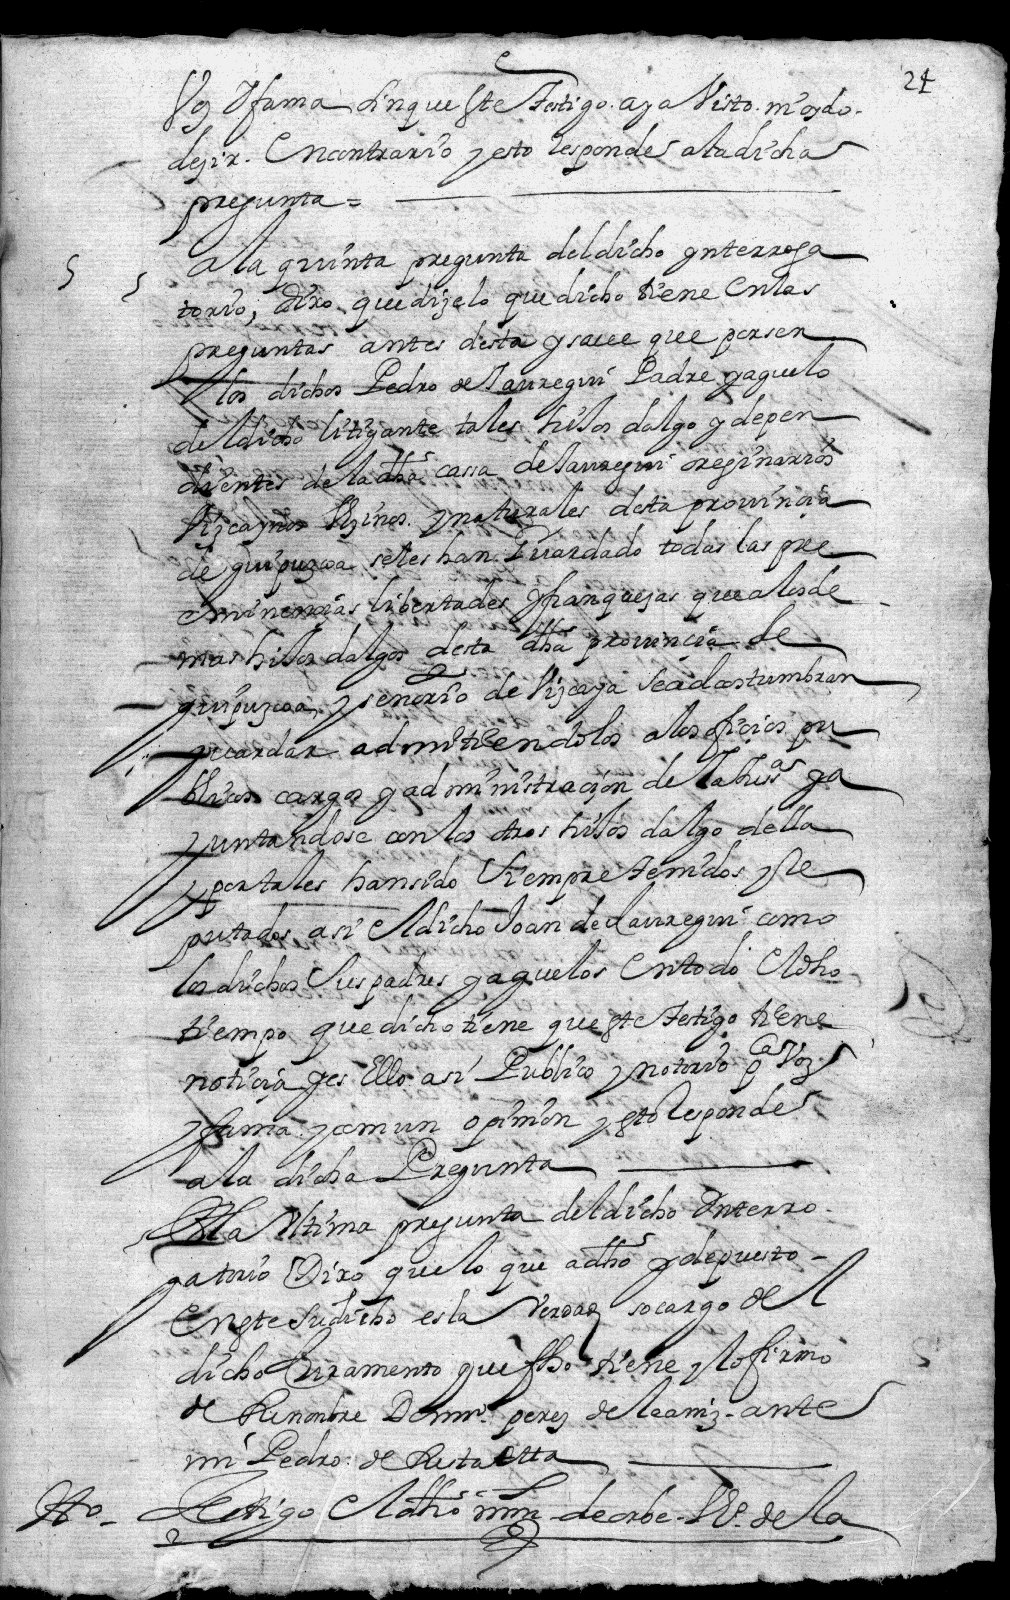 24
Voz y fama sin que este testigo aya visto ni oydo
dezir encontrario y esto responde a la dicha
pregunta =
5 5 a la quinta pregunta del dicho ynterroga
torio, dixo que dize lo que dicho tiene en las
preguntas antes desta y saue que por ser
los dichos Pedro de Jauregui Padre y aguelo
del dicho litigante tales hijos dalgo y depen
dientes de la dha cassa de Jauregui oreginarios
Vizcaynos Vezinos y naturales desta prouincia
de guipuzcoa se les han guardado todas las pre
eminencias libertades y franquezas que a los de
mas hijos dalgos desta dha prouincia de
guipuzcoa y senorio de Vizcaya se acostumbran
guardar admitiendolos a los oficios pu
blicos cargos y administracion de la huss.as ga
yuntandose con los otros hijos dalgo della
y por tales han sido siempre tenidos y Re
putados asi el dicho Joan de Jauregui como
los dichos sus padres y aguelos en todo el dho
tiempo que dicho tiene que este testigo tiene
noticia y es ello asi Publico y notorio p.ca Voz
y fama y comun opinion y esto Responde
a la dicha Pregunta
A la Vltima pregunta del dicho ynterro
gatorio Dixo que lo que a dho y depuesto
en este su dicho es la Verdad so cargo del
dicho Juramento que fho tiene y lo firmo
de Su nombre Domin. perez de leaniz ante
mi Pedro de
tº Testigo el dho mrn de orbe Vº de la